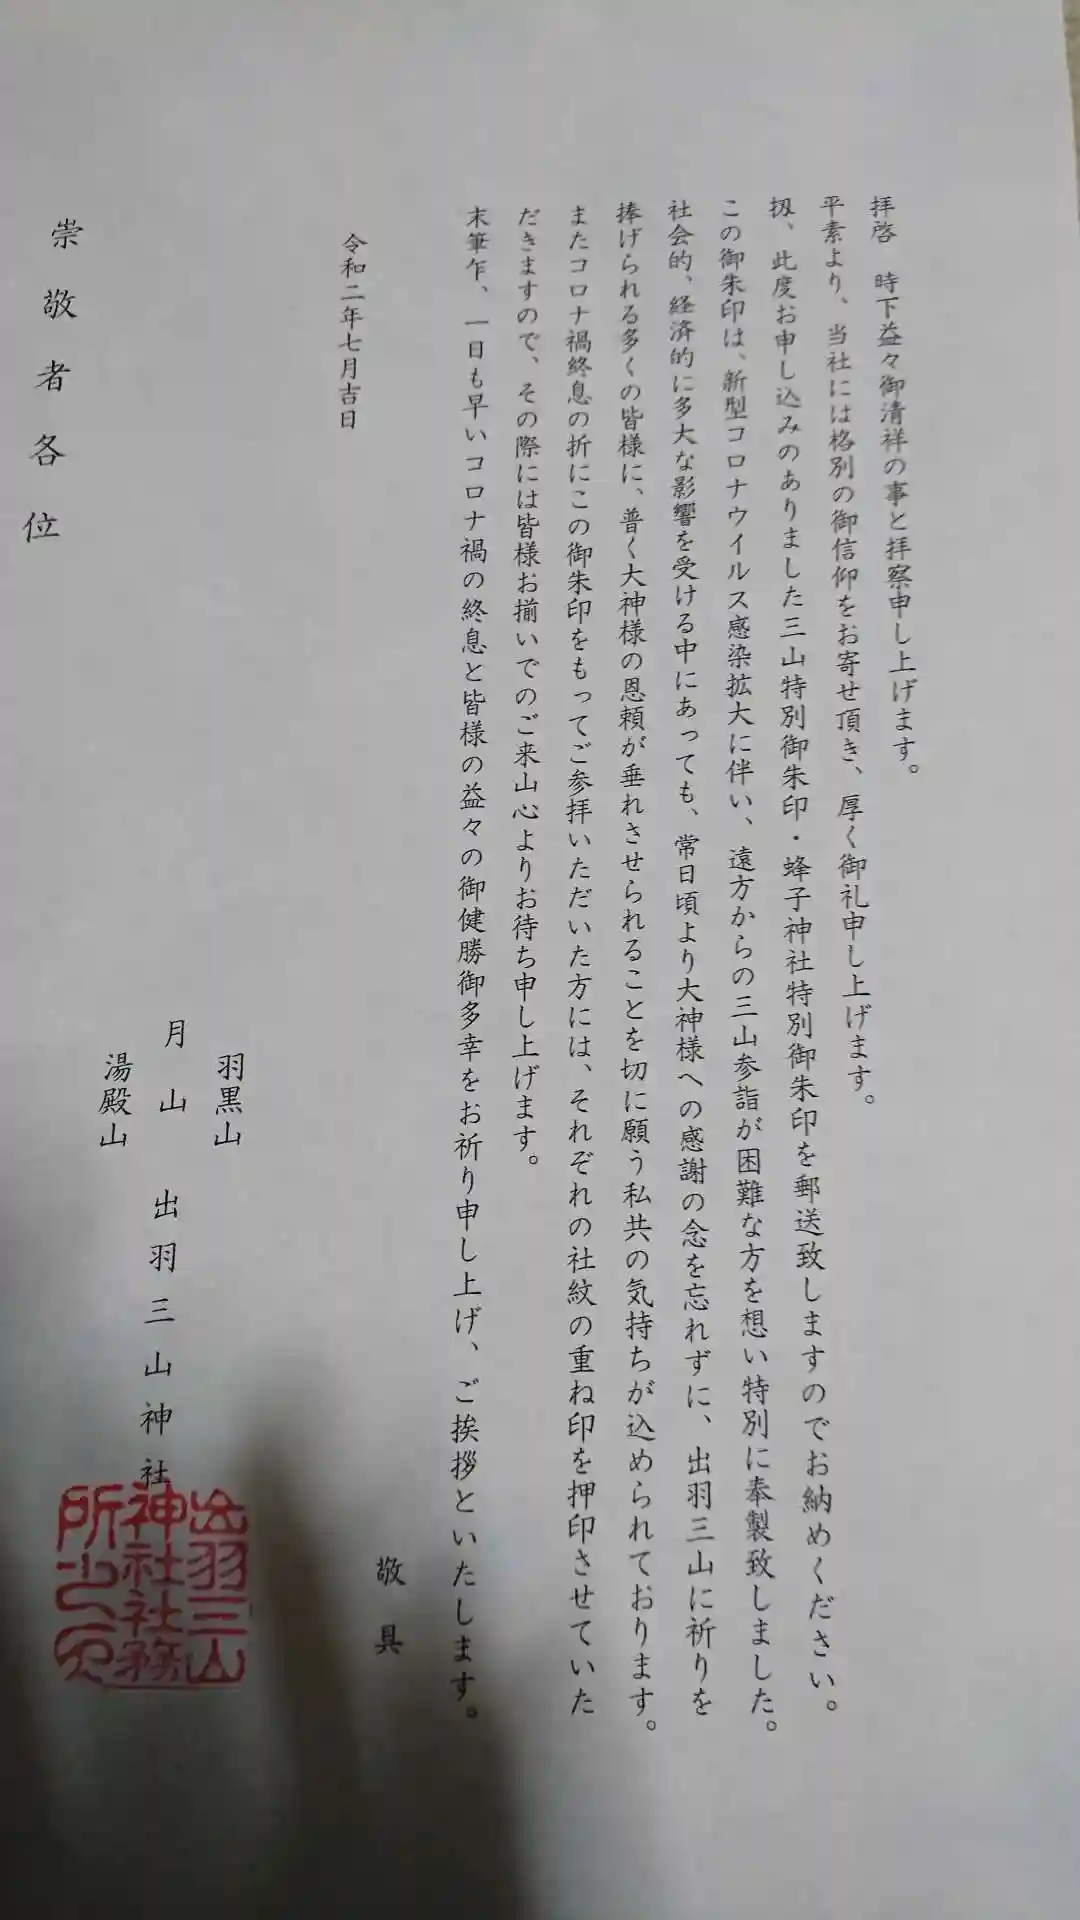 拝啓　時下益々御清祥の事と拝察申し上げます。
平素より、当社には格別の御信仰をお寄せ頂き、厚く御礼申し上げます。
扨、此度お申し込みのありました三山特別御朱印・蜂子神社特別御朱印を郵送致しますのでお納めください。
この御朱印は、新型コロナウイルス感染拡大に伴い、遠方からの三山参詣が困難な方を想い特別に奉製致しました。
社会的、経済的に多大な影響を受ける中にあっても、常日頃より大神様への感謝の念を忘れずに、出羽三山に祈りを
捧げられる多くの皆様に、普く大神様の恩頼が垂れさせられることを切に願う私共の気持ちが込められております。
またコロナ禍終息の折にこの御朱印をもってご参拝いただいた方には、それぞれの社紋の重ね印を押印させていた
だきますので、その際には皆様お揃いでのご来山心よりお待ち申し上げます。
末筆乍、一日も早いコロナ禍の終息と皆様の益々の御健勝御多幸をお祈り申し上げ、ご挨拶といたします。
敬具
令和二年七月吉日
羽黒山
月山　出羽三山神社
湯殿山
出羽三山
神社社務
所之印
崇敬者各位